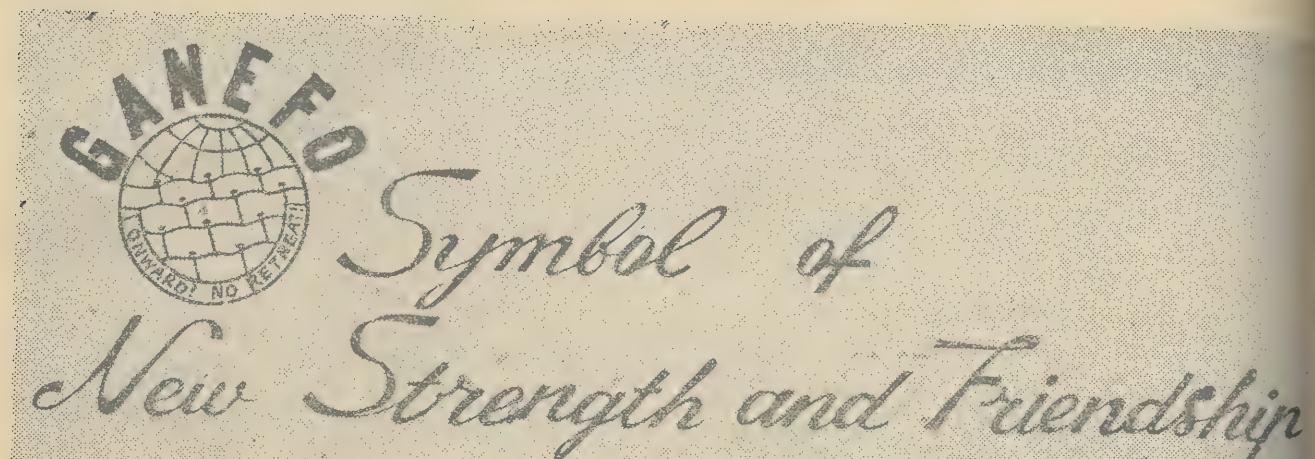 GANEFO
ONWARD! NO RETREAT!!
Symbol of
New Strength and Friendship